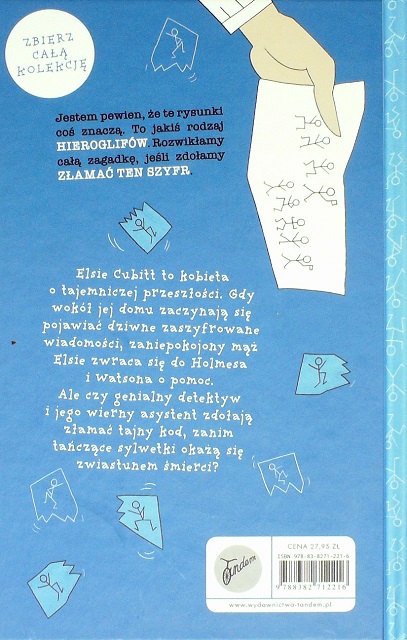 ZBIERZ
CAŁĄ
KOLEKCJĘ
Jestem pewien, że te rysunki
coś znaczą. To jakiś rodzaj
HIEROGLIFÓW. Rozwikłamy
całą zagadkę, jeśli zdołamy
ZŁAMAĆ TEN SZYFR.
Elsie Cubitt to kobieta
o tajemniczej przeszłości. Gdy
wokół jej domu zaczynają się
pojawiać dziwne zaszyfrowane
wiadomości, zaniepokojony mąż
Elsie zwraca się do Holmesa
i Watsona o pomoc.
Ale czy genialny detektyw
i jego wierny asystent zdołają
złamać tajny kod, zanim
tańczące sylwetki okażą się
zwiastunem śmierci?
Tandem
CENA 27,95 ZŁ
ISBN 978-83-8271-221-6
9788382712216
www.wydawnictwo-tandem.pl